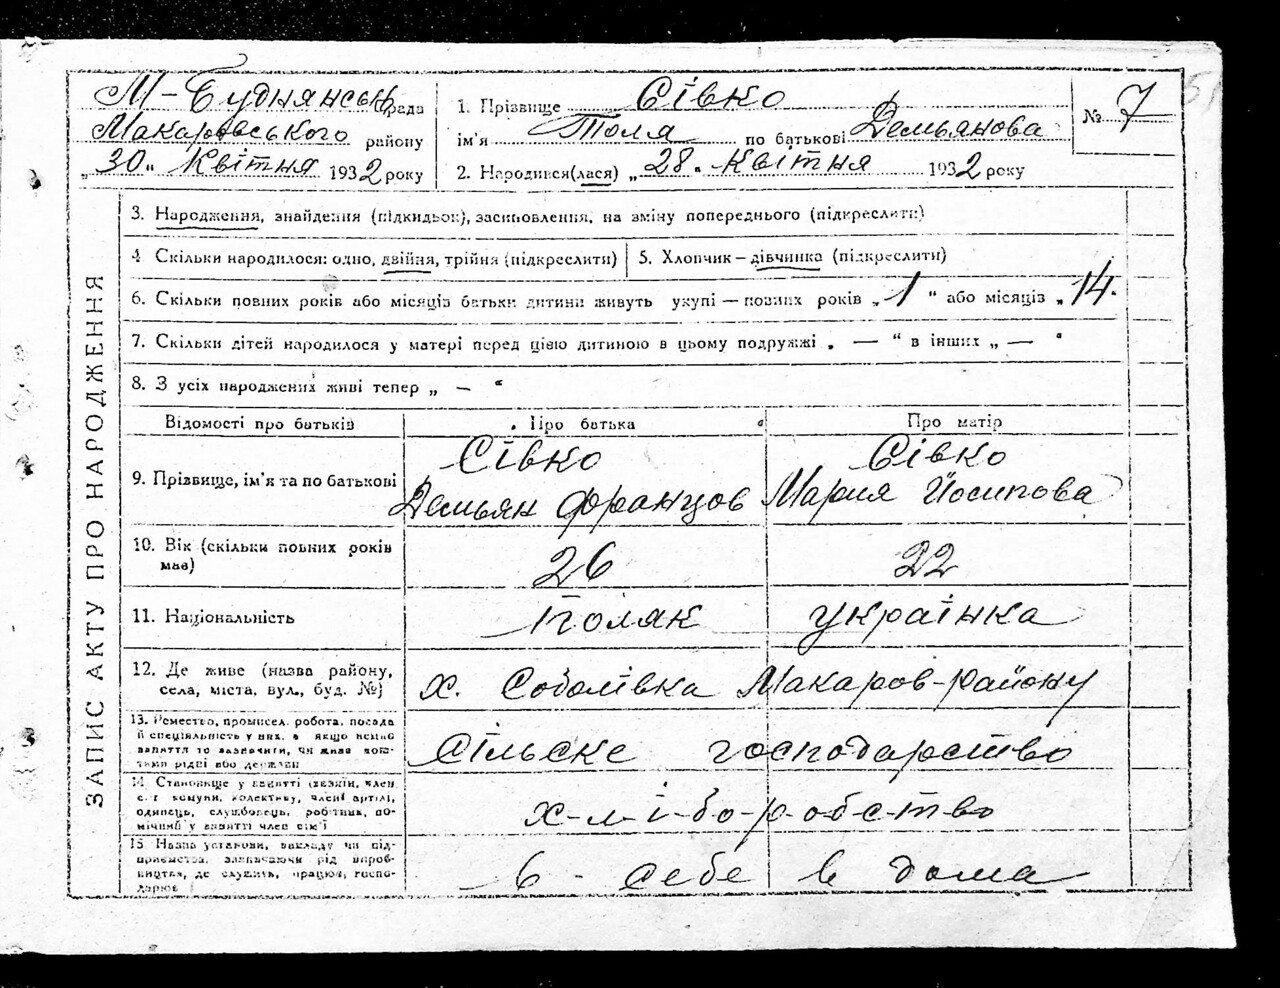 М-Буднянська рада
Макаровського району
„30" Квітня 1932 року
1. Прізвище Сівко
ім'я Толя по батькові Демьянова
2. Народився(лася) „28" Квітня 1932 року
№ 7
51
ЗАПИС АКТУ ПРО НАРОДЖЕННЯ
3. Народження, знайдення (підкидьок), засиновлення, на зміну попереднього (підкреслити)
4. Скільки народилося: одно, двійня, трійня (підкреслити)
5. Хлопчик — дівчинка (підкреслити)
6. Скільки повних років або місяців батьки дитини живуть укупі — повних років „1" або місяців „14.
7. Скільки дітей народилося у матері перед цією дитиною в цьому подружжі „ — " в інших „ — "
8. З усіх народжених живі тепер „ — "
Відомості про батьків
Про батька
Про матір
9. Прізвище, ім'я та по батькові
Сівко
Демьян Францов
Сівко
Мария Йосипова
10. Вік (скільки повних років
має)
26
22
11. Національність
Поляк
українка
12. Де живе (назва району,
села, міста, вул., буд. №)
х. Соболівка Макаров-району
13. Ремество, промисел, робота, посада
й спеціяльність у них, а якщо немає
заняття то зазначити, чи живе кош-
тами рідні або держави
сільске господарство
14. Становище у занятті (хазяїн, член
с.-г. комуни, колективу, члені артілі,
одинець, службовець, робітник, по-
мічний у занятті член сім'ї
х-л-і-бо-р-об-с-т-во
15 Назва установи, закладу чи під-
приємства, зазначаючи рід вироб-
ництва, де служить, працює, госпо-
дарює
в - себе в дома